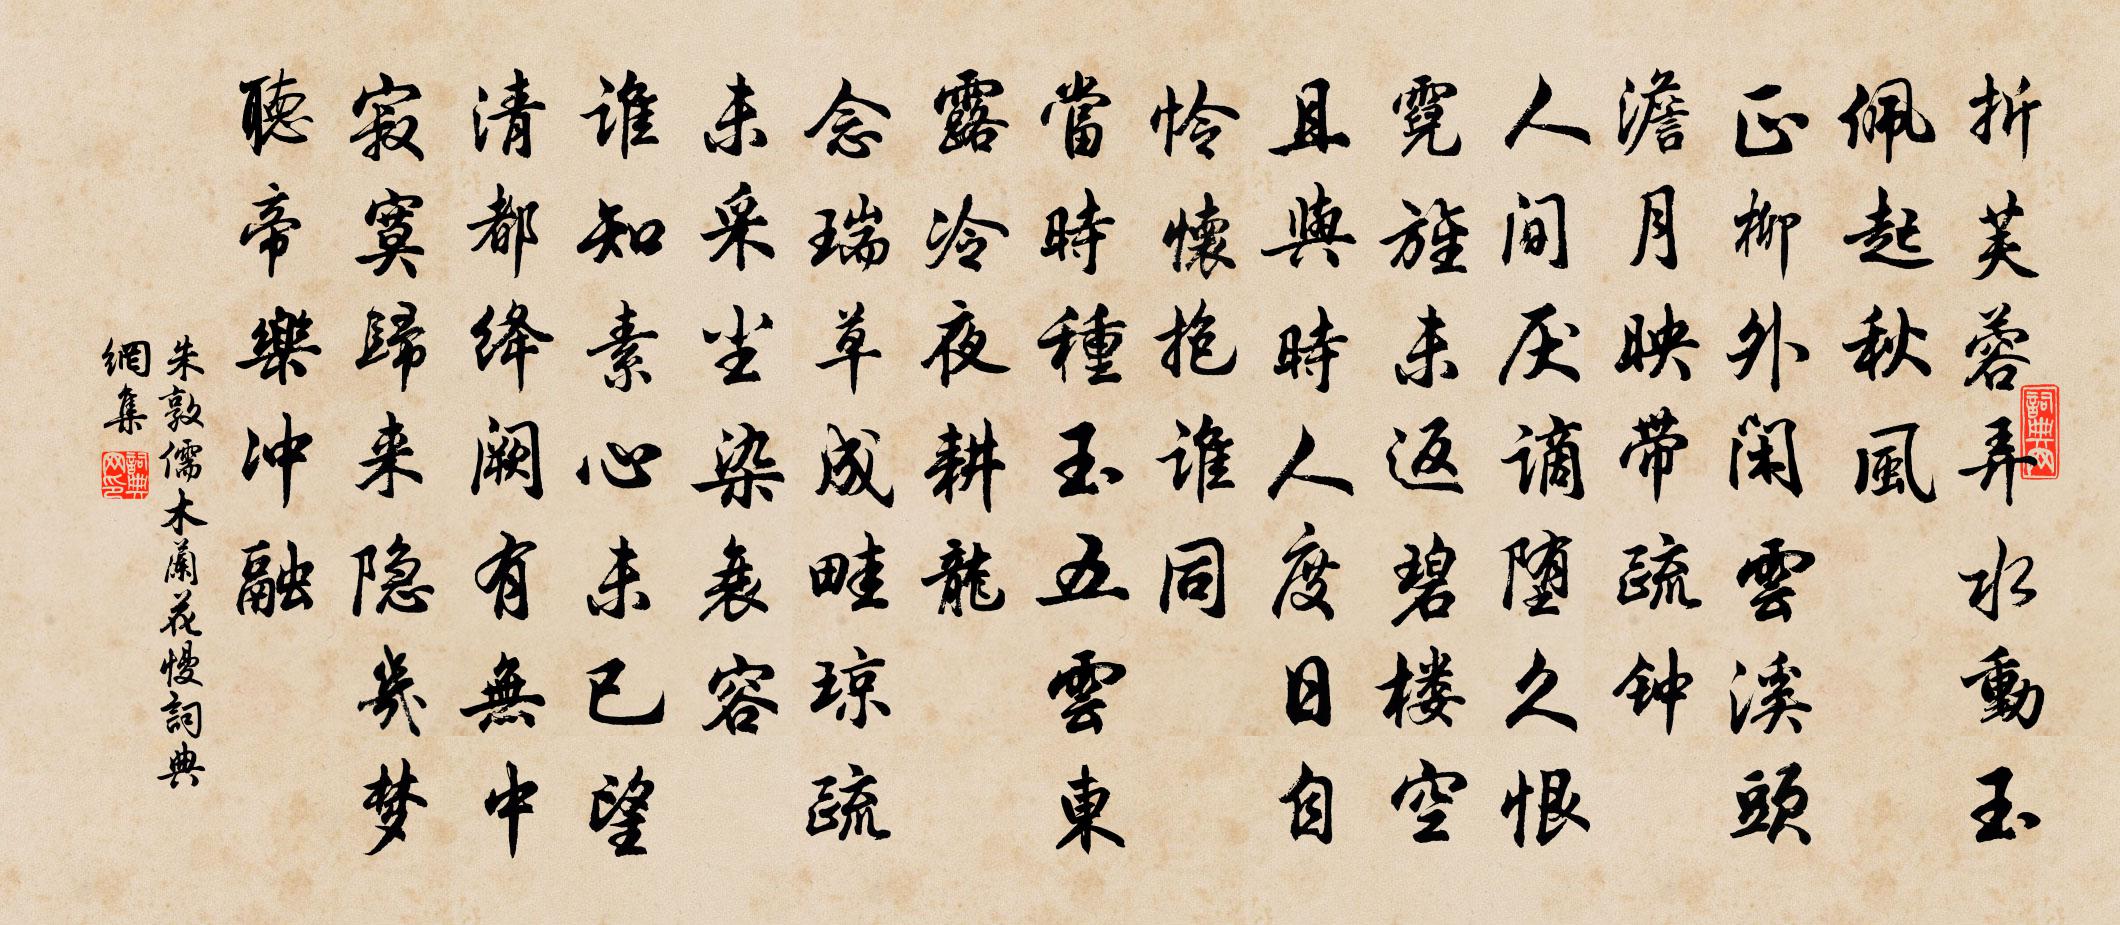 折芙蓉弄水動玉
佩起秋風
正柳外閑雲溪頭
澹月映带疏钟
人间厌谪堕久恨
霓旌未返碧楼空
且與時人度日自
怜懷抱谁同
當時種玉五雲東
露冷夜耕龍
念瑞草成畦琼疏
未采尘染衰容
谁知素心未已望
清都绛阙有無中
寂寞歸来隐几梦
聽帝樂冲融
朱敦儒木蘭花慢詞典
網集
詞典网
詞典网印